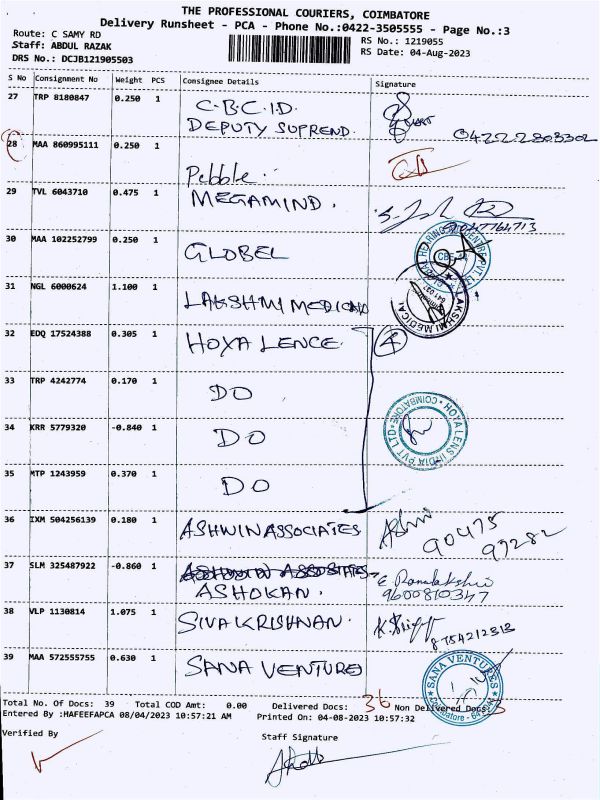 THE PROFESSIONAL COURIERS, COIMBATORE
Delivery Runsheet - PCA - Phone No.:0422-3505555 - Page No.:3
Route: C SAMY RD
Staff: ABDUL RAZAK
DRS No.: DCJB121905503
RS No.: 1219055
RS Date: 04-Aug-2023
S No Consignment No Weight PCS Consignee Details Signature
27 TRP 8180847 0.250 1 C.B.C.I.D.
DEPUTY SUPREND.
28 MAA 860995111 0.250 1 Pebble.
29 TVL 6043710 0.475 1 MEGAMIND.
30 MAA 102252799 0.250 1 GLOBEL
31 NGL 6000624 1.100 1 LAKSHMI MEDICAL
LAKSHMI MEDICAL
32 EDQ 17524388 0.305 1 HOXA LENCE. 4
33 TRP 4242774 0.170 1 DO
34 KRR 5779320 -0.840 1 DO
HOYA LENS INDIA PVT LTD
COIMBATORE
35 MTP 1243959 0.370 1 DO
36 IXM 504256139 0.180 1 ASHWIN ASSOCIATES
90475
97282
37 SLM 325487922 -0.860 1
ASHOKAN.
9600810347
38 VLP 1130814 1.075 1 SIVAKRISHNAN.
8754212313
39 MAA 572555755 0.630 1 SANA VENTURES
SANA VENTURES
Total No. Of Docs: 39 Total COD Amt: 0.00 Delivered Docs: 36 Non Delivered Docs: 3
Entered By :HAFEEFAPCA 08/04/2023 10:57:21 AM Printed On: 04-08-2023 10:57:32
Verified By
Staff Signature